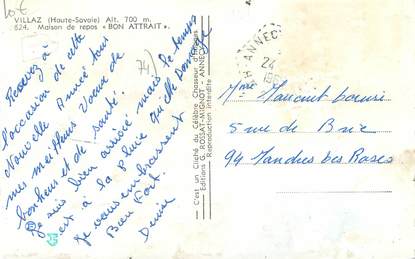 10€
VILLAZ (Haute-Savoie) Alt. 700 m.
824. Maison de repos « BON ATTRAIT ».
74)
Recevez à
l'occasion de cette
Nouvelle Année tous
mes meilleurs Voeux de
bonheur et de santé.
Je suis bien arrivée mais le temps
est à la Pluie quelle Dommage
je vous embrassant
Bien Fort.
Denise
C'est un Cliché du Célèbre Chasseur d'Images
Editions G. ROSSAT-MIGNOT - ANNECY
Reproduction interdite
ANNECY
24
Mme Louise
5 rue de Brie
94 Mandres les Roses